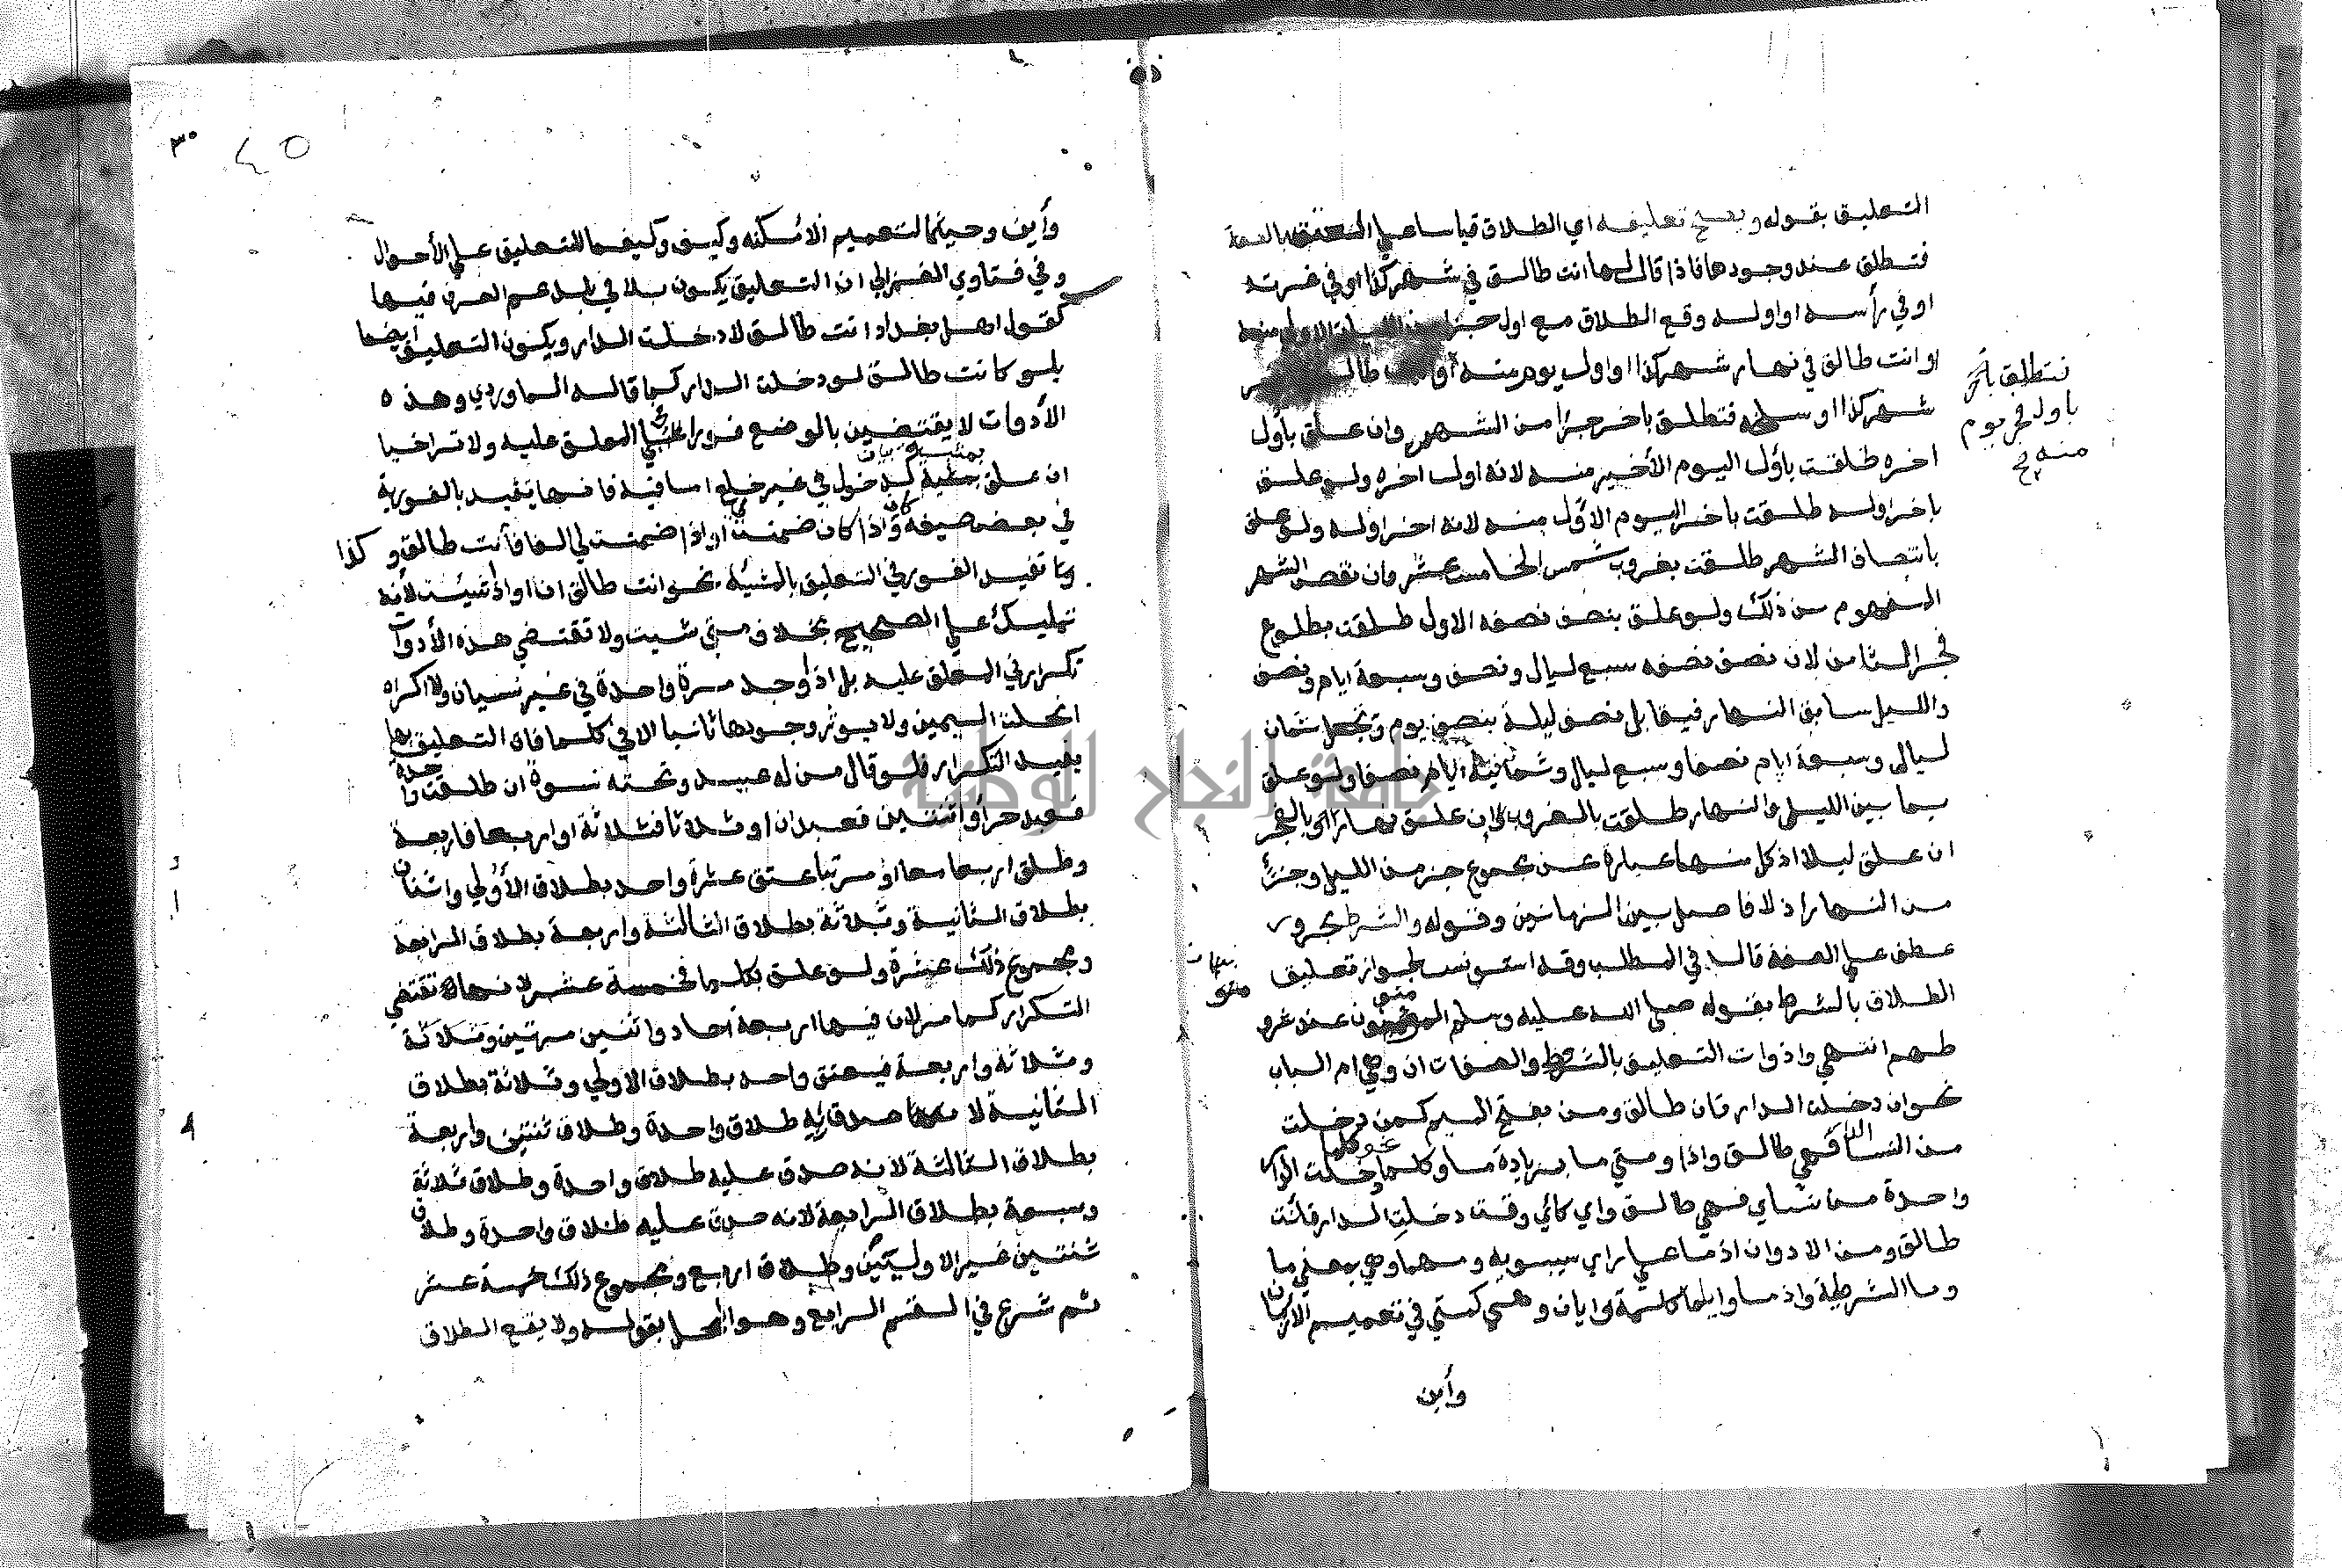 التعليق بقوله ويصح تعليقه اي الطلاق قياسا علي العتق بالصفة
فتطلق عند وجودها فاذا قال لها انت طالق في شهر كذا او في غرته
او في رأسه او اوله وقع الطلاق مع اول جزء من الليلة الاولي منه
او انت طالق في نهار شهر كذا او اول يوم منه او انت طالق
شهر كذا او سلخه فتطلق باخر جزأ من الشهر وان علق بأول
اخره طلقت بأول اليوم الأخير منه لانه اول اخره ولو علق
باخر اوله طلقت باخر اليوم الأول منه لانه اخر اوله ولو علق
بانتصاف الشهر طلقت بغروب شمس الخامس عشر وان نقص الشهر
المفهوم من ذلك ولو علق بنصف نصفه الاول طلقت بطلوع
فجر الثامن لان نصف نصفه سبع ليال ونصف وسبعة ايام ونصف
والليل سابق النهار فيقابل نصف ليلة بنصف يوم وتجعل ثمان
ليالي وسبعة ايام نصفا وسبع ليال وثمانية ايام نصفا ولو علق
بما بين الليل والنهار طلقت بالغروب ان علق نهارا او بالفجر
ان علق ليلا اذ كل منهما عبارة عن مجموع جزء من الليل وجزء
من النهار اذ لا فاصل بين الزمانين وقوله والشرط مجرور
عطف علي الصفة قال في المطلب وقد استونس لجواز تعليق
الطلاق بالشرط بقوله صلي الله عليه وسلم المومنون عند شرو
طهم انتهي وادوات التعليق بالشرط والصفات ان وهي ام الباب
نحو ان دخلت الدار فان طالق ومن بفتح الميم كمن دخلت
من النسا الدار فهي طالق واذا ومتي ما بزيادة ما وكلما نحو كلما دخلت الدار
واحدة من نساي فهي طالق واي كاي وقت دخلت الدار فانت
طالق ومن الادوات اذما علي راي سيبويه ومهما وهي بمعني ما
وما الشرطية واذما وايلما كلمة وايان وهي كمتي في تعميم الازمان
وأين
فتطلق
باول فجر يوم
منه صح
وأين وحيثما لتعميم الامكنه وكيف وكيفما للتعليق علي الأحوال
وفي فتاوي الغزالي ان التعليق يكون بلا في بلد عم العرف فيها
كقول اهل بغداد انت طالق لا دخلت الدار ويكون التعليق ايضا
بلو كانت طالق لو دخلت الدار كما قاله الماوردي وهذه
الأدوات لا يقتضين بالوضع فورا في المعلق عليه ولا تراخيا
ان علق بمثبت كدخول في غير خلع اما فيه فانها تفيد بالفورية
في بعض صيغه كان واذا كان ضمنت او اذا ضمنت لي الفا فأنت طالق وكذا
وتا تفيد الفور في التعليق بالمشيئة نحو انت طالق ان او اذ شيئت لأنه
تمليك علي الصحيح بخلاف متي شيت ولا تقتضي هذه الأدوآ
تكرار في المعلق عليه بل اذا وجد مرة واحدة في غير نسيان ولا اكراه
انحلت اليمين ولا يوثر وجودها ثانيا الا في كلما فان التعليق بها
يفيد التكرار فلو قال من له عبيد وتحته نسوة ان طلقت واحدة
فعبد حر أو اثنتين فعبدان او ثلاثا فثلاثة او اربعا فاربعة
وطلق اربعا معا او مرتبا عتق عشرة واحد بطلاق الأولي واثنان
بطلاق الثانية وثلاثة بطلاق الثالثة واربعة بطلاق الرابعة
ومجموع ذلك عشرة ولو علق بكلما فخمسة عشر لانها تقتضي
التكرار كما مر لان فيها اربعة احاد واثنين مرتين وثلاثة
وثلاثة واربعة فيعتق واحد بطلاق الاولي وثلاثة بطلاق
الثانية لانه صدق به طلاق واحدة وطلاق ثنتين واربعة
بطلاق الثالثة لانه صدق عليه طلاق واحدة وطلاق ثلاثة
وسبعة بطلاق الرابعة لانه صدق عليه طلاق واحدة وطلاق
ثنتين غير الاوليتين وطلاق اربع ومجموع ذلك خمسة عشر
ثم شرع في القسم الرابع وهو المحل بقوله ولا يقع الطلاق
٤٥
جامعة النجاح الوطنية